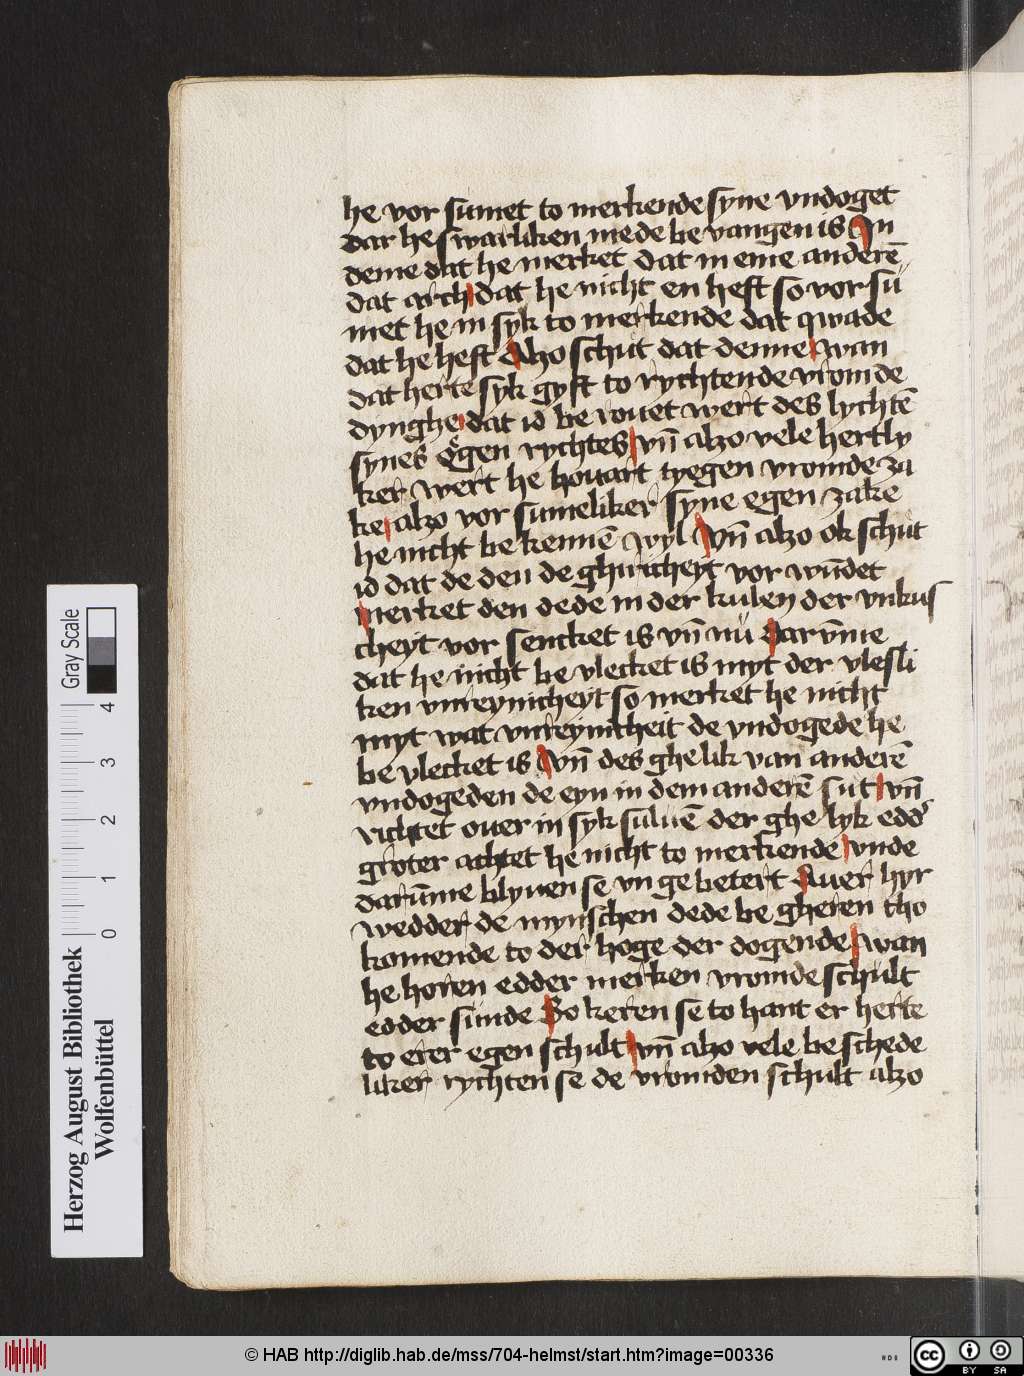 he vor sumet to merkende syne vndoget
dar he swarliken mede be vangen is In
deme dat he merket dat in eme anderē
dat arch dat he nicht en heft so vor sü
met he in syk to merkende dat qwade
dat he heft Alzo schut dat denne wan
dat herte syk gyft to rychtende vromde
dynghe dat id be rouet wert des lychtē
synes egen rychtes vn̄ alzo vele hertly
ker wert he houart tyegen vromde za
ke alzo vor sumeliker syne egen zake
he nicht be kennē wyl Vn̄ alzo ok schut
id dat de den de ghiricheyt vor wūdet
merket den dede in der kulen der vnkus
cheyt vor sencket is vn̄ nü Darv̄me
dat he nicht be vlecket is myt der vlesli
ken vnreynicheyt so merket he nicht
myt wat vnreynicheit de vndogede he
be vlecket is Vn̄ des ghelik van anderē
vndogeden de eyn in dem anderē sut vn̄
richtet ouer in syk suluē der ghe lyk edd'
groter achtet he nicht to merkende vnde
darūme blyuen se vn ge betert Auer hyr
wedder de mynschen dede be gheren tho
komende to der hoge der dogende wan
he horen edder merken vromde schult
edder sunde So keren se to hant er herte
to erer egen schult vn̄ alzo vele be schede
liker rychten se de vromden schult alzo
Herzog August Bibliothek
Wolfenbüttel
Gray Scale
0 1 2 3 4
© HAB http://diglib.hab.de/mss/704-helmst/start.htm?image=00336
cc BY SA